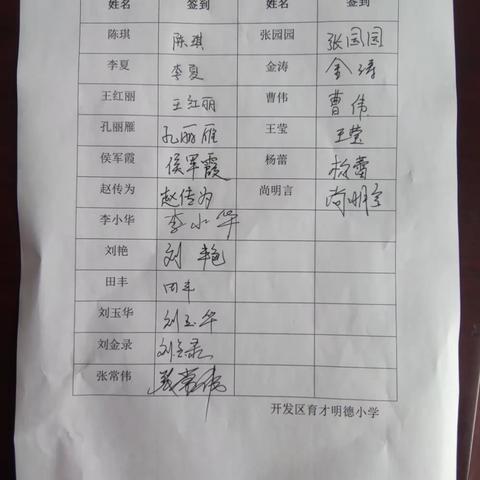 姓名 签到 姓名 签到
陈琪 陈琪 张园园 张园园
李夏 李夏 金涛 金涛
王红丽 王红丽 曹伟 曹伟
孔丽雁 孔丽雁 王莹 王莹
侯军霞 侯军霞 杨蕾 杨蕾
赵传为 赵传为 尚明言 尚明言
李小华 李小华
刘艳 刘艳
田丰 田丰
刘玉华 刘玉华
刘金录 刘金录
张常伟 张常伟
开发区育才明德小学